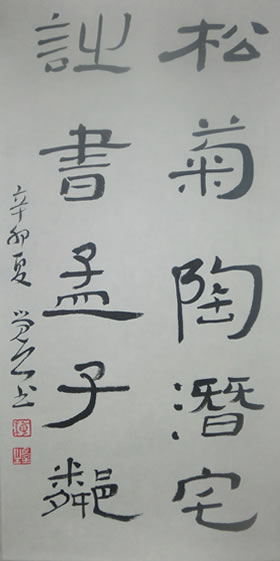 松菊陶潜宅
詩書孟子鄰
辛卯夏 书